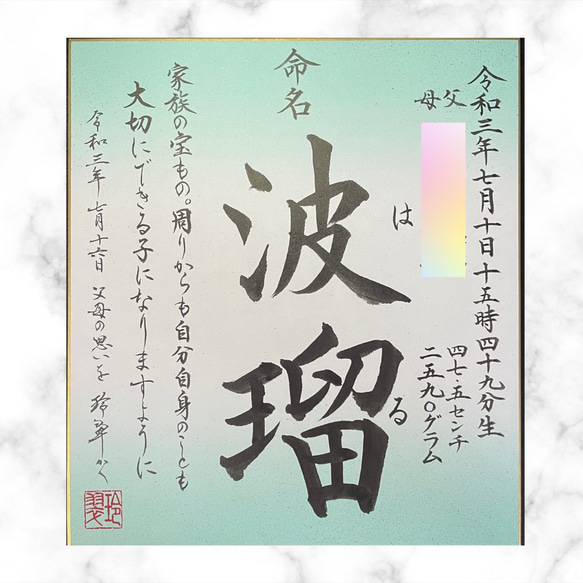 令和三年七月十日十五時四十九分生
父
母
四七・五センチ
二五九〇グラム
は
る
波瑠
命名
家族の宝もの。周りからも自分自身のことも
大切にできる子になりますように
令和三年 七月十六日 父母の思いを 玲翠かく
玲翠